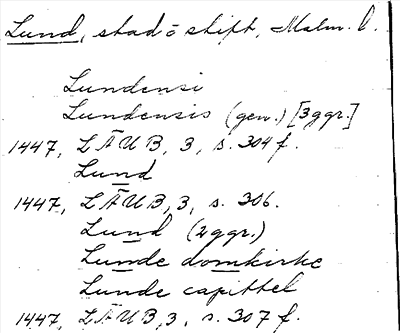 Lund, stad o stift, Malm. l.
Lundensi
Lundensis (gen.) [3ggr.]
1447, LÄUB, 3, s. 304 f.
Lund
1447, LÄUB, 3, s. 306.
Lund (2ggr.)
Lunde domkirke
Lunde capittel
1447, LÄUB, 3, s. 307 f.